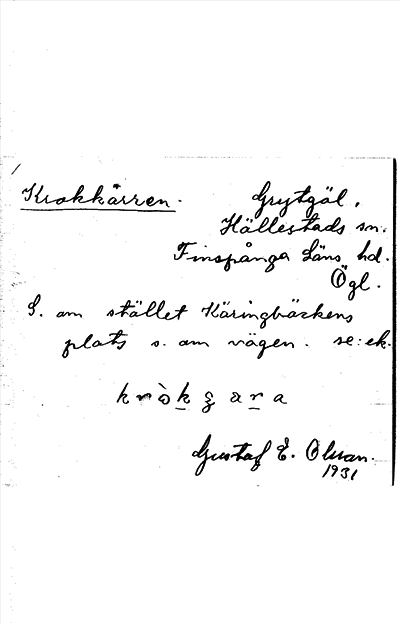 Krokkärren.
Grytgöl,
Hällestads sn.
Finspånga läns hd.
Ögl.
S. om stället Käringbäckens
plats s. om vägen. se: ek.
kròkɀara
Gustaf E. Olson.
1931